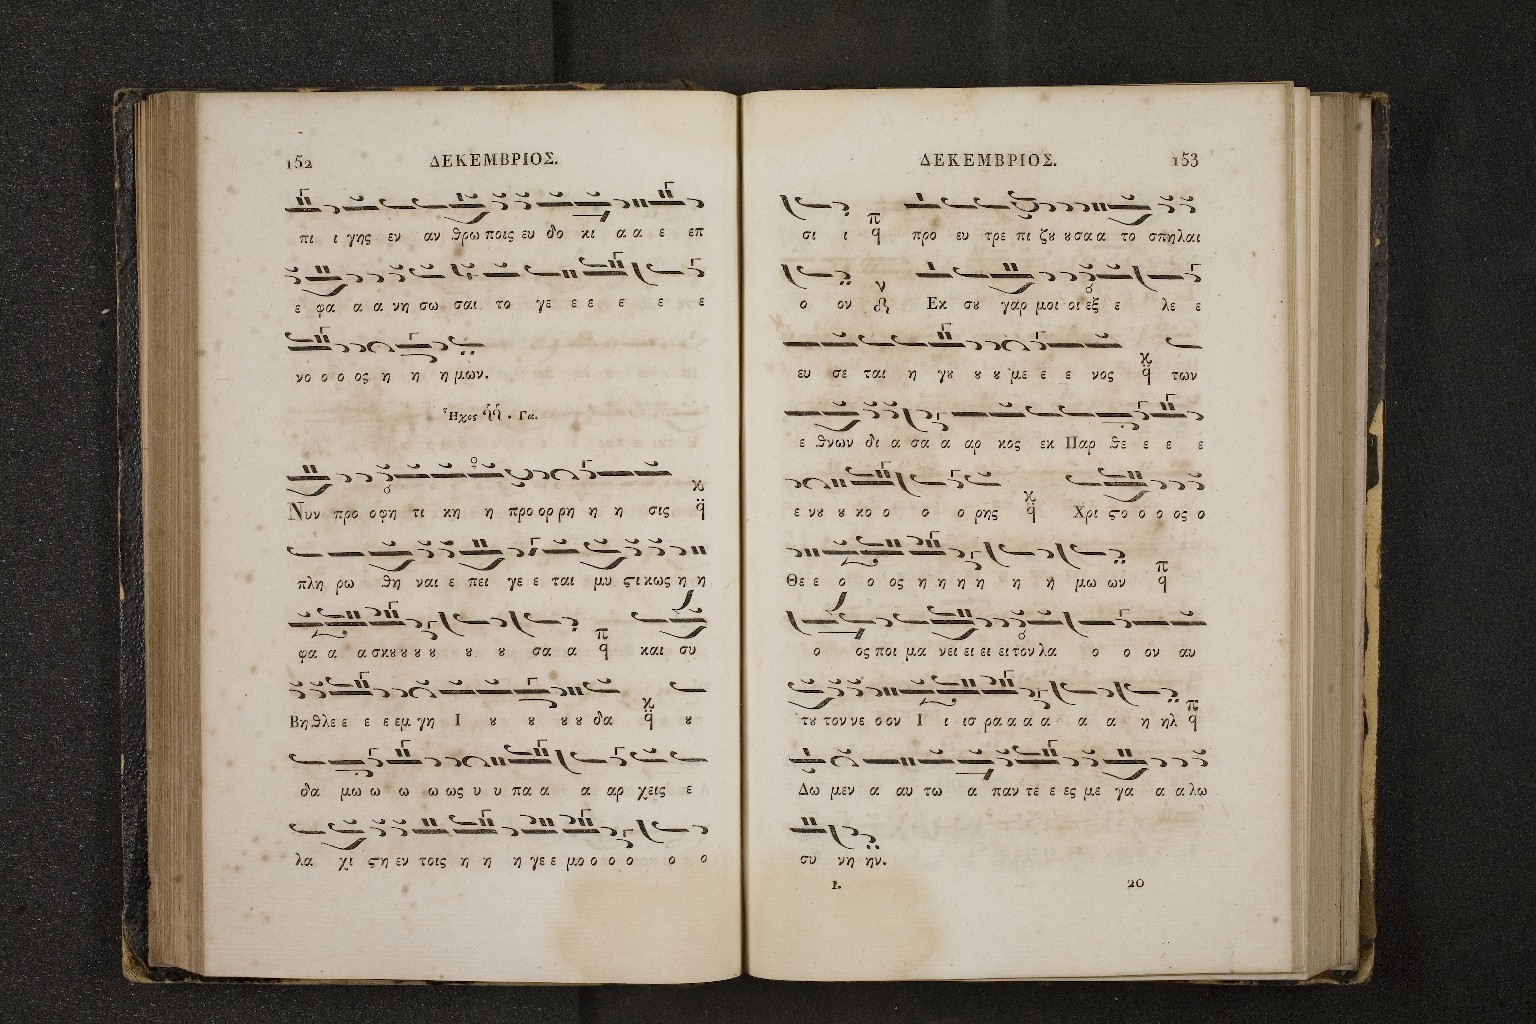 152 ΔΕΚΕΜΒΡΙΟΣ.
πι ι γης εν αν θρω ποις ευ δο κι α α ε επ
ε φα α α νη σω σαι το γε ε ε ε ε ε
νο ο ο ος η η η μων.
Ἦχος . Γα.
Νυν προ ο φη τι κη η προ ορ ρη η η σις
πλη ρω θη ναι ε πει γε ε ται μυ ϛι κως η η
φα α α σκȣ ȣ ȣ ȣ ȣ ȣ σα α και συ
Βη θλε ε ε ε εμ γη Ι ȣ ȣ ȣ ȣ δα ȣ
δα μω ω ω ω ως υ υ πα α α αρ χεις ε
λα χι ϛη εν τοις η η η γε ε μο ο ο ο ο ο
ΔΕΚΕΜΒΡΙΟΣ. 153
σι ι προ ευ τρε πι ζȣ ȣ σα α το σπηλαι
ο ον Εκ σȣ γαρ μοι οι εξ ε λε ε
ευ σε ται η γȣ ȣ ȣ με ε ε νος των
ε θνων δι α σα α αρ κος εκ Παρ θε ε ε ε
ε νȣ ȣ κο ο ο ο ρης Χρι ϛο ο ο ος ο
Θε ε ο ο ος η η η η η η μω ων
ο ος ποι μα νει ει ει ει τον λα ο ο ον αυ
τȣ τον νε ο ον Ι ι ισ ρα α α α α α η ηλ
Δω μεν α αυ τω α παν τε ε ες με γα α α λω
συ νη ην.
I. 20